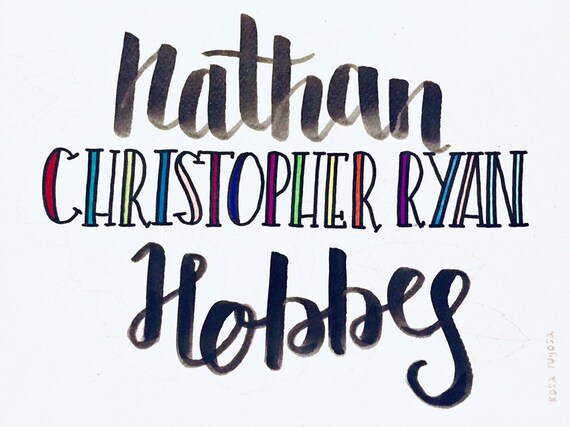 Nathan
CHRISTOPHER RYAN
Hobbes
Rosa rugosa